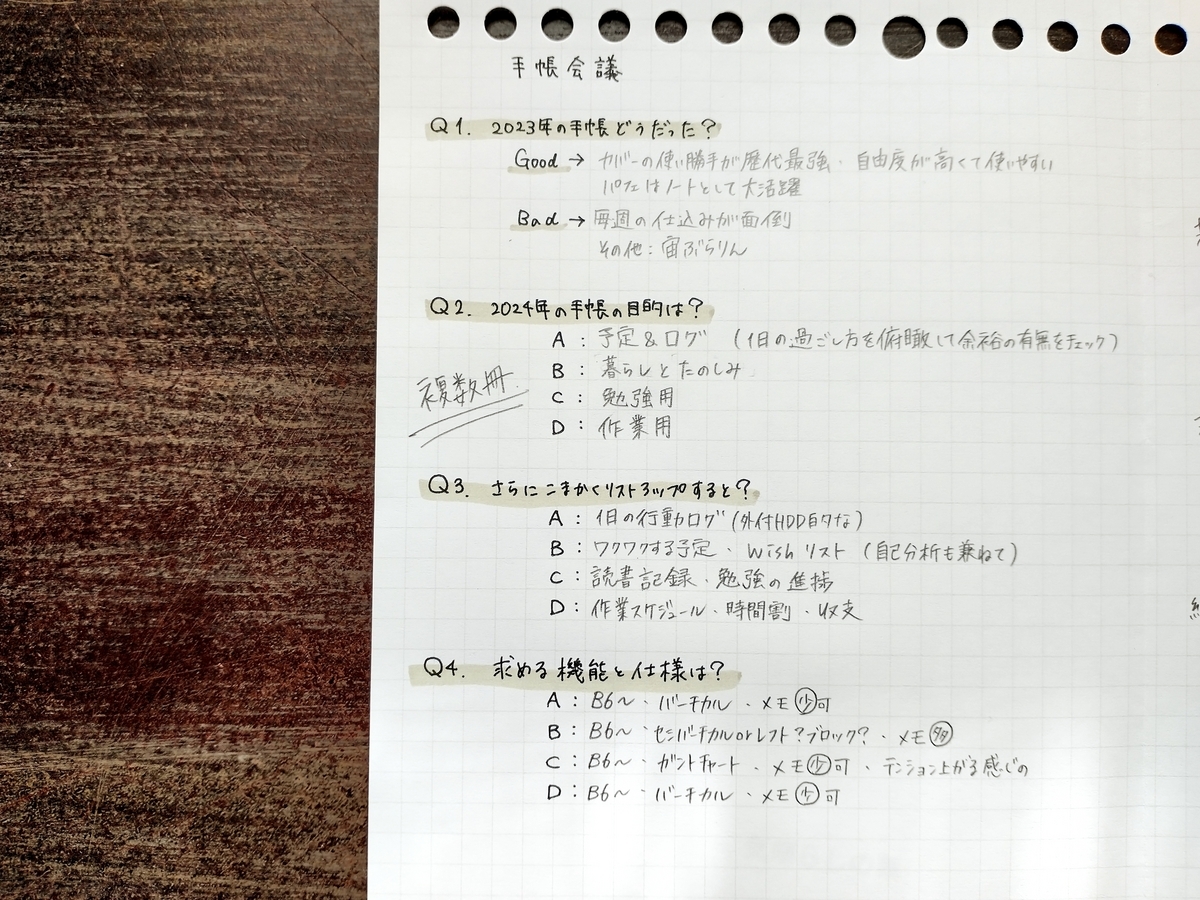 手帳会議
Q1. 2023年の手帳どうだった?
Good → カバーの使い勝手が歴代最強・自由度が高くて使いやすい
パフェはノートとして大活躍
Bad → 毎週の仕込みが面倒
その他:宙ぶらりん
Q2. 2024年の手帳の目的は?
A:予定&ログ (1日の過ごし方を俯瞰して余裕の有無をチェック)
B:暮らしとたのしみ
複数冊
C:勉強用
D:作業用
Q3. さらにこまかくリストアップすると?
A:1日の行動ログ(外付HDD的な)
B:ワクワクする予定・Wishリスト(自己分析も兼ねて)
C:読書記録・勉強の進捗
D:作業スケジュール・時間割・収支
Q4. 求める機能と仕様は?
A:B6〜・バーチカル・メモ少可
B:B6〜・セミバーチカルorレフト?ブロック?・メモ多
C:B6〜・ガントチャート・メモ少可・テンション上がる感じの
D:B6〜・バーチカル・メモ少可